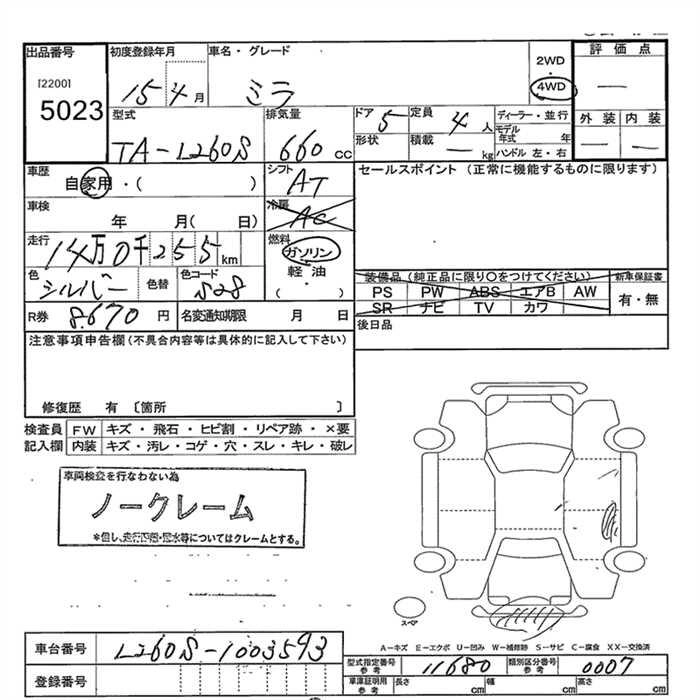 出品番号 初度登録年月 車名・グレード 2WD 評価点
[2200] 5023 15 4月 ミラ 4WD ―
型式 排気量 ドア 5 定員 4人 ディーラー・並行 外装 内装
TA-L260S 660cc 形状 積載 ― kg モデル年式 年 ― ―
ハンドル 左・右
車歴 シフト セールスポイント (正常に機能するものに限ります)
自家用・( ) AT
車検 冷房
年 月( 日) AC
走行 燃料
14万0千255km ガソリン
色 色コード 軽油
シルバー 色替 S28 ( )
装備品(純正品に限り○をつけてください) 新車保証書
PS PW ABS エアB AW 有・無
SR ナビ TV カワ
R券 8,670円 名変通知期限 月 日 後日品
注意事項申告欄(不具合内容等は具体的に記入して下さい)
修復歴 有 〔箇所 〕
検査員 FW キズ・飛石・ヒビ割・リペア跡・×要
記入欄 内装 キズ・汚レ・コゲ・穴・スレ・キレ・破レ
車両検査を行なわない為
ノークレーム
*但し、走行距離・冠水等についてはクレームとする。
スペア
A―キズ E―エクボ U―凹み W―補修跡 S―サビ C―腐食 XX―交換済
車台番号 L260S-1003593
型式指定番号 参考 11680 類別区分番号 参考 0007
登録番号 車庫証明用 参考 長さ cm 幅 cm 高さ cm